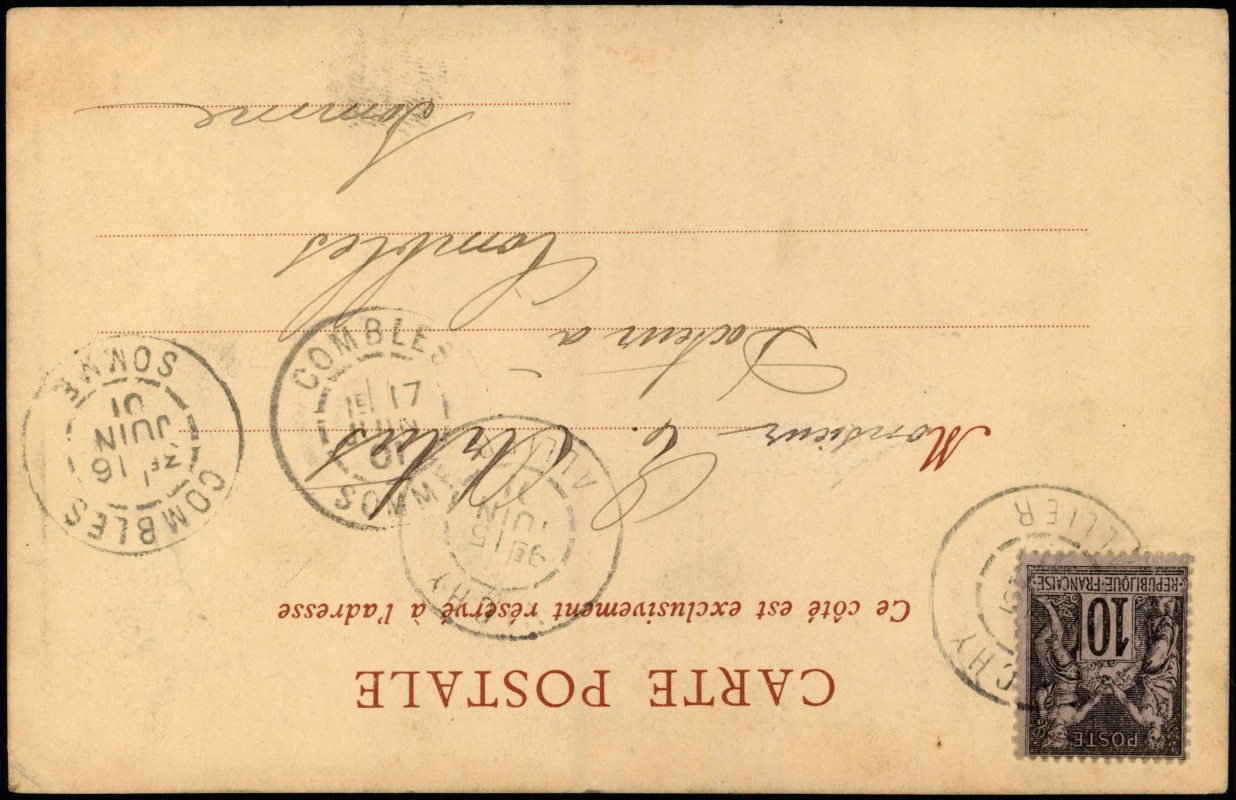 CARTE POSTALE
Ce côté est exclusivement réservé à l'adresse
Monsieur E.
Docteur à
Combles
Somme
POSTE
10
RÉPUBLIQUE FRANÇAISE
CHY
LLIER
CHY
9E 15
JUIN
ALLIER
COMBLES
1E 17
JUIN
01
SOMME
COMBLES
1 16
JUIN
01
SOMME